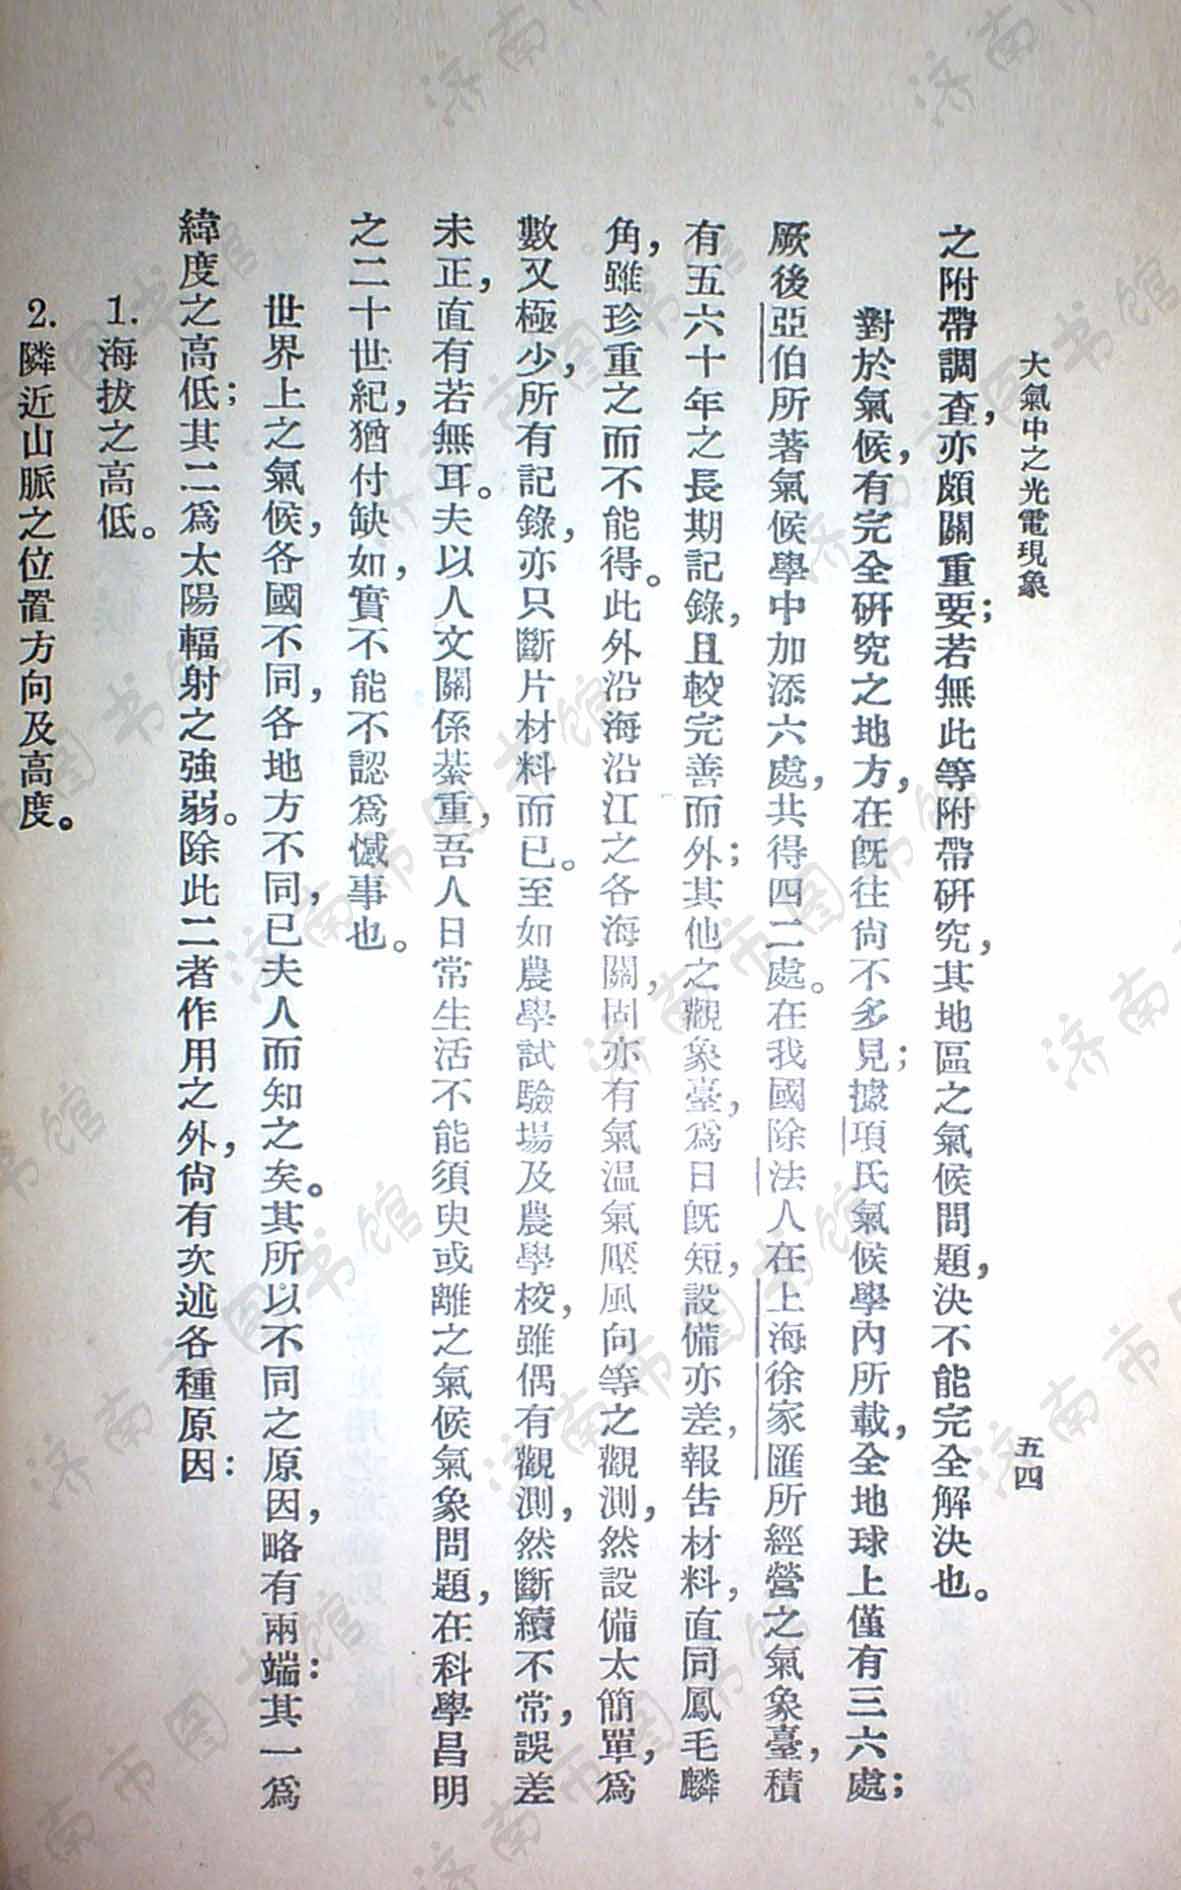 大氣中之光電現象
五四
之附帶調查，亦頗關重要；若無此等附帶研究，其地區之氣候問題，決不能完全解決也。
對於氣候，有完全研究之地方，在既往尙不多見；據項氏氣候學內所載，全地球上僅有三六處；
厥後亞伯所著氣候學中加添六處，共得四二處。在我國除法人在上海徐家匯所經營之氣象臺，積
有五六十年之長期記錄，且較完善而外；其他之觀象臺，爲日既短，設備亦差，報告材料，直同鳳毛麟
角，雖珍重之而不能得。此外沿海沿江之各海關，固亦有氣温氣壓風向等之觀測，然設備太簡單，爲
數又極少，所有記錄，亦只斷片材料而已。至如農學試驗場及農學校，雖偶有觀測，然斷續不常，誤差
未正，直有若無耳。夫以人文關係綦重，吾人日常生活不能須臾或離之氣候氣象問題，在科學昌明
之二十世紀，猶付缺如，實不能不認爲憾事也。
世界上之氣候，各國不同，各地方不同，已夫人而知之矣。其所以不同之原因，略有兩端：其一爲
緯度之高低；其二爲太陽輻射之強弱。除此二者作用之外，尙有次述各種原因：
1.海拔之高低。
2.隣近山脈之位置方向及高度。
济南市图书馆